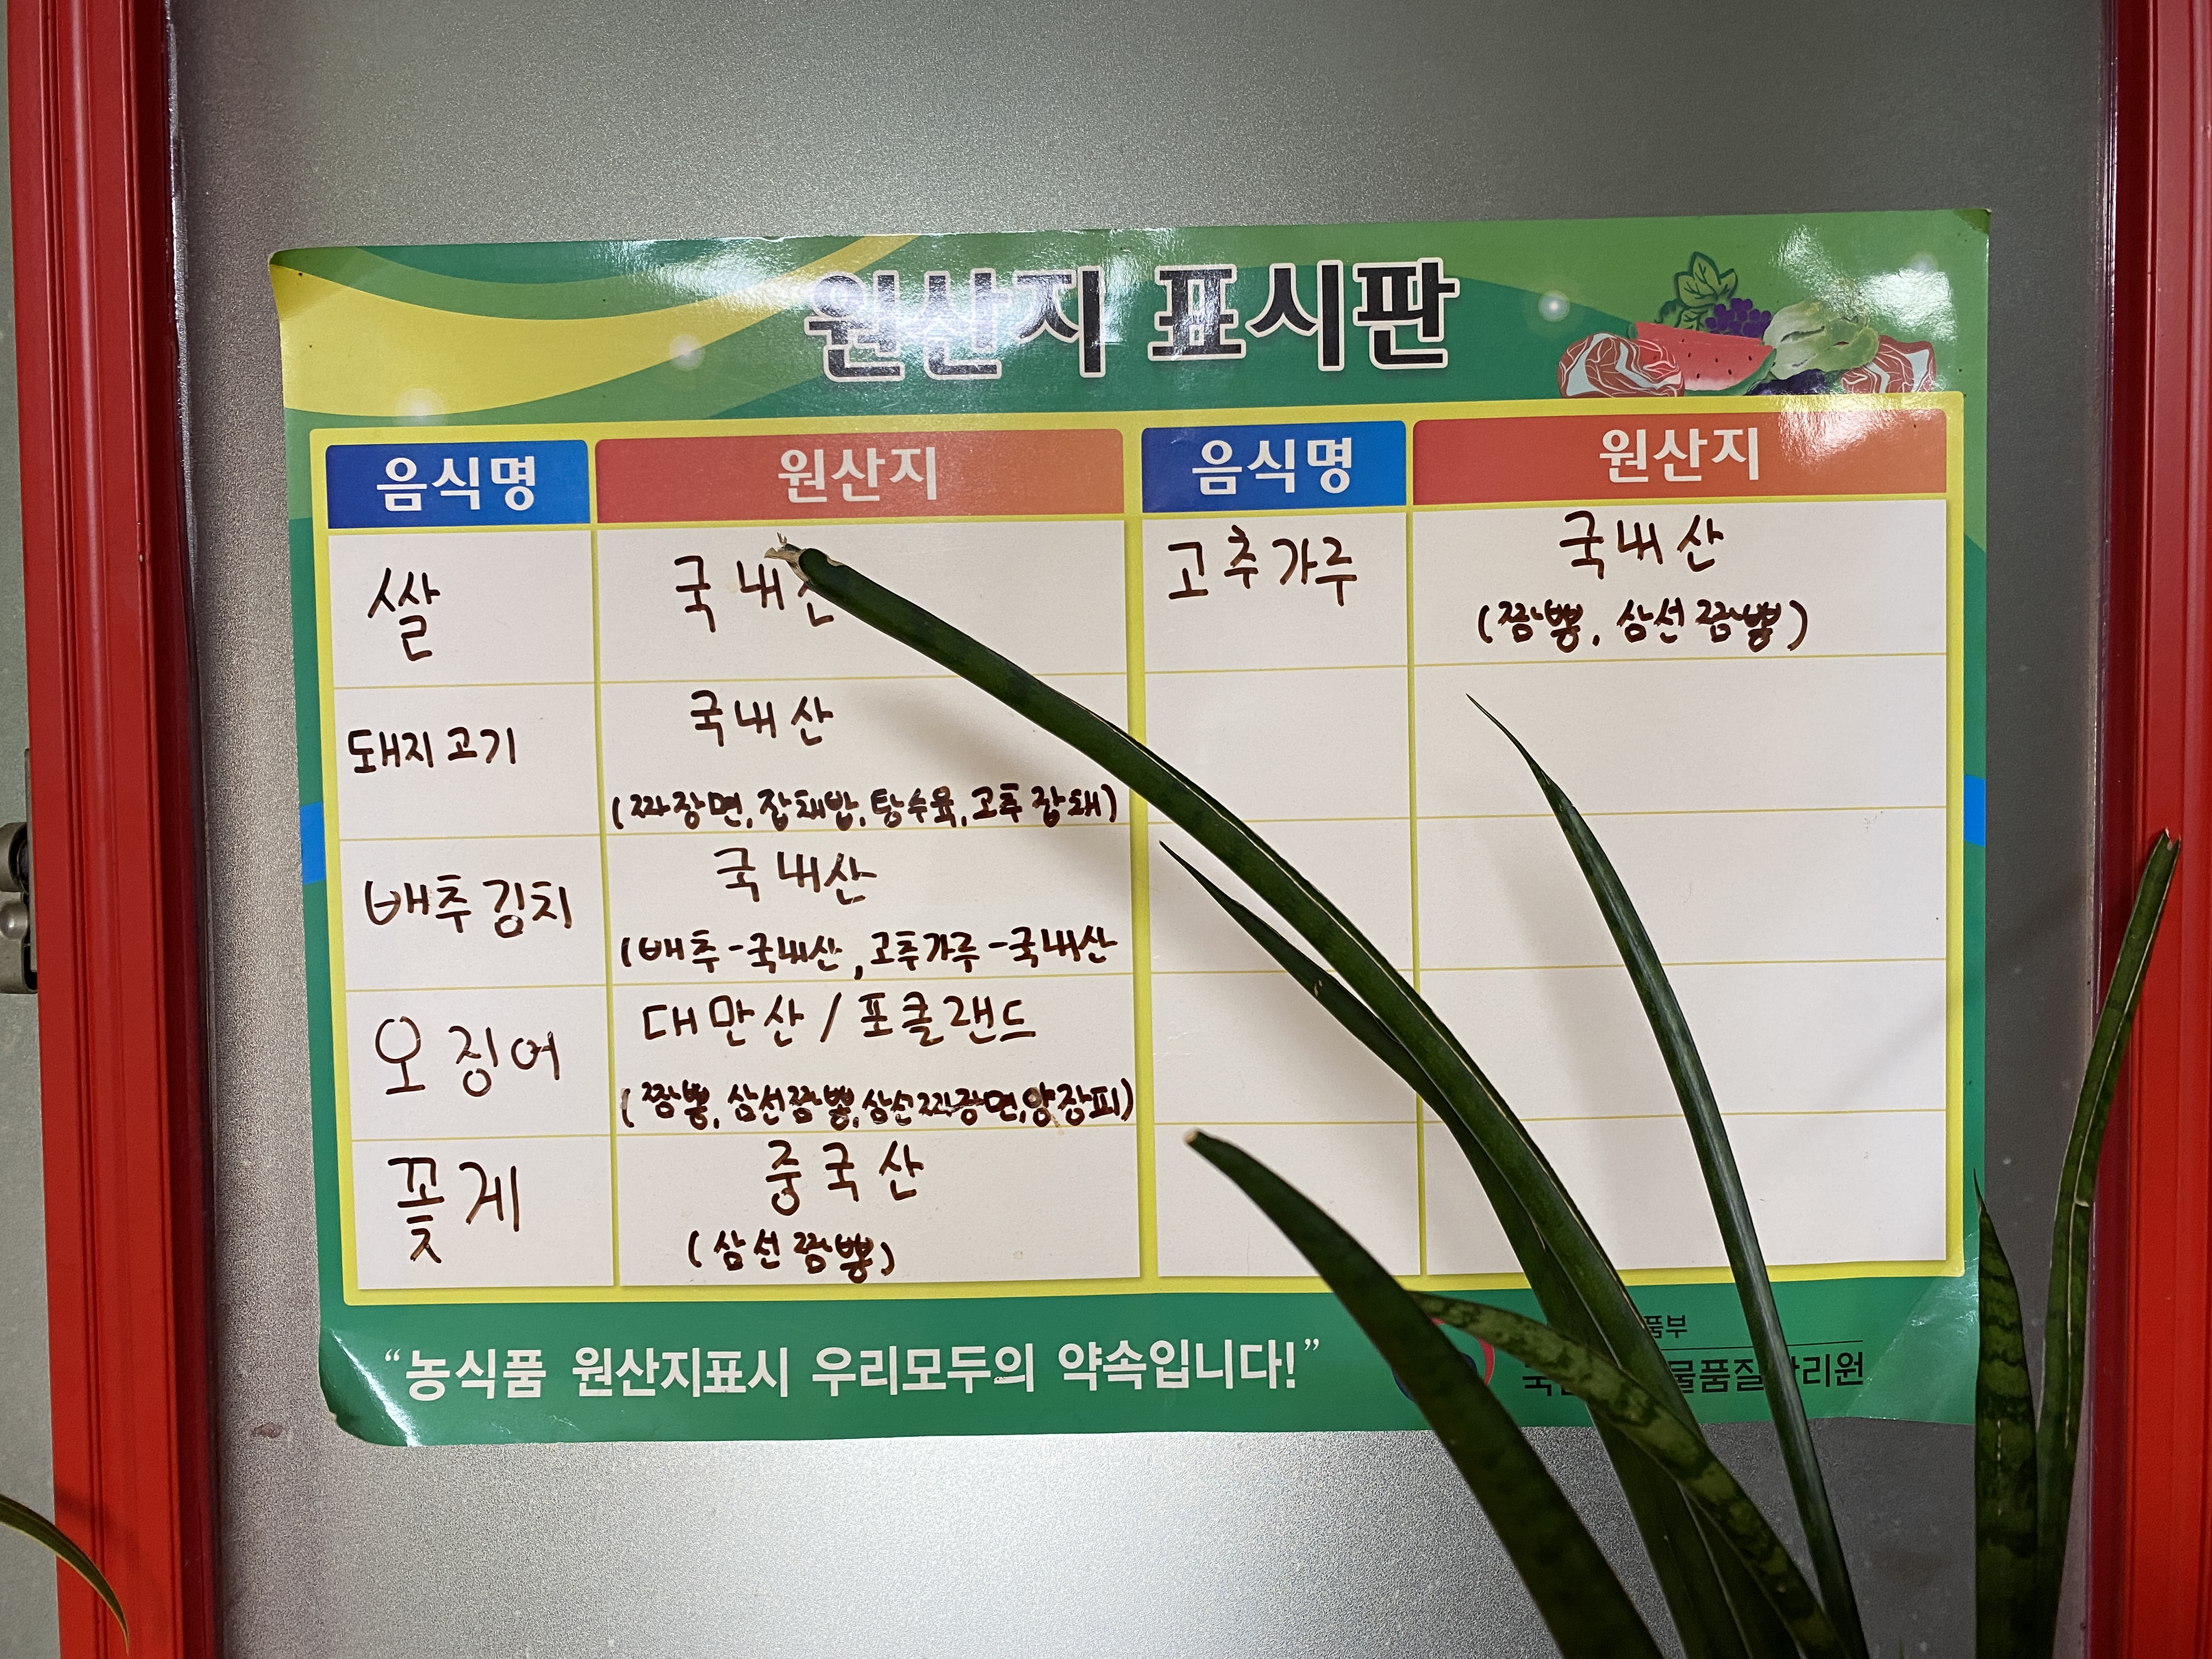 원산지 표시판
음식명 원산지 음식명 원산지
쌀 국내산
고추가루 국내산
(짬뽕, 삼선짬뽕)
돼지고기 국내산
(짜장면, 잡채밥, 탕수육, 고추잡채)
배추김치 국내산
(배추-국내산, 고추가루-국내산
오징어 대만산/포클랜드
(짬뽕, 삼선짬뽕, 삼선짜장면, 양장피)
꽃게 중국산
(삼선짬뽕)
“농식품 원산지표시 우리모두의 약속입니다!”